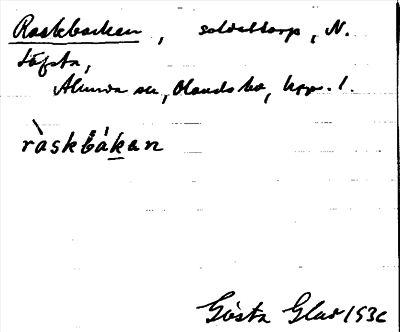 Raskbacken, soldattorp, N.
Löfsta,
Alunda sn, Olands hd, Upps. l.
ràskbákan
Gösta Glad 1936